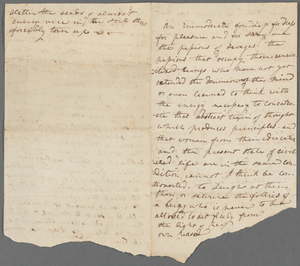 scatter the seeds of almost
every vice in the soil thus
forcibly torn up
An immoderate fondness for dress
for pleasure and for sway are
the passions of savages the
passions that occupy those uncivi-
lized beings who have not yet
extended the dominion of the mind
or even learned to think with
the energy necessary to concate-
nate that abstract train of thought
which produces principles and
that women from their education
and the present state of civili-
zed life are in the same con-
dition cannot I think be con-
troverted. To laugh at them
then or satirize the follies of
a being who is never to be
allowed to act freely from
the light of her
own reason